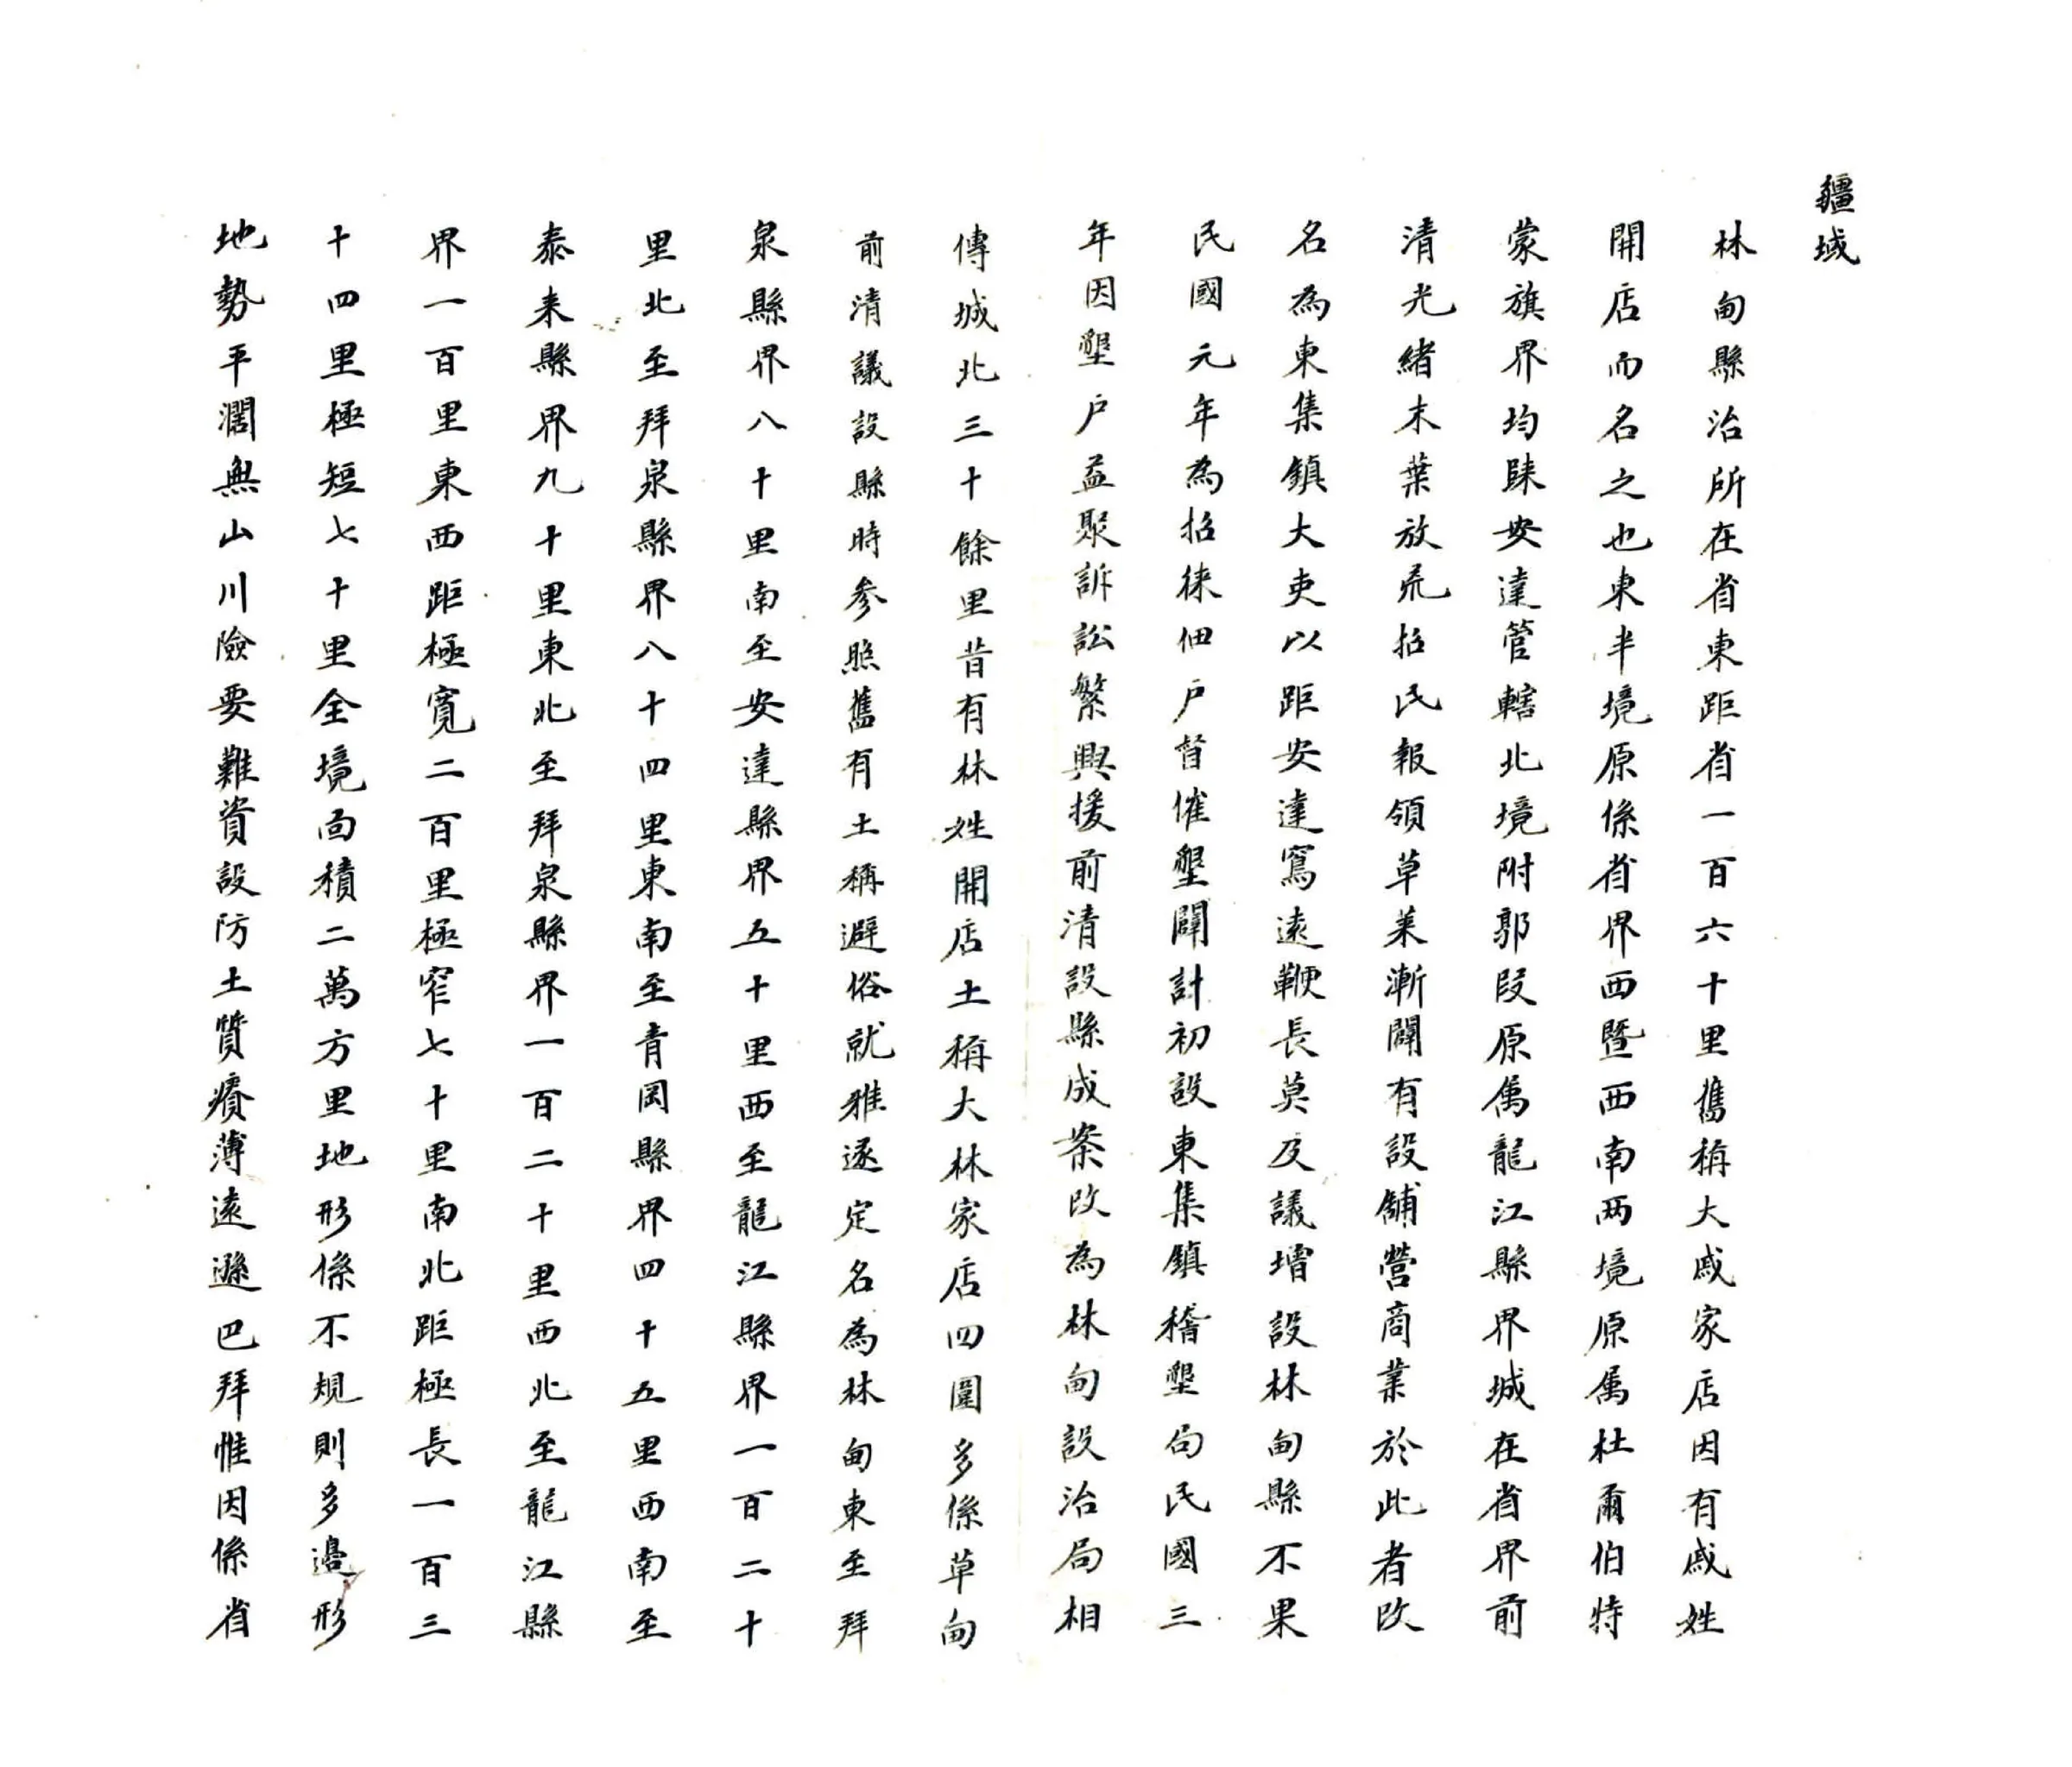 疆域
林甸縣治所在省東距省一百六十里舊稱大戚家店因有戚姓
開店而名之也東半境原係省界西暨西南两境原属杜爾伯特
蒙旗界均隸安達管轄北境附郭段原属龍江縣界城在省界前
清光緒末葉放荒招民報領草萊漸闢有設舖營商業於此者改
名為東集鎮大吏以距安達窵遠鞭長莫及議增設林甸縣不果
民國元年為招徠佃户督催墾闢計初設東集鎮稽墾局民國三
年因墾户益聚訴訟繁興援前清設縣成案改為林甸設治局相
傳城北三十餘里昔有林姓開店土稱大林家店四圍多係草甸
前清議設縣時参照舊有土稱避俗就雅遂定名為林甸東至拜
泉縣界八十里南至安達縣界五十里西至龍江縣界一百二十
里北至拜泉縣界八十四里東南至青岡縣界四十五里西南至
泰来縣界九十里東北至拜泉縣界一百二十里西北至龍江縣
界一百里東西距極寬二百里極窄七十里南北距極長一百三
十四里極短七十里全境面積二萬方里地形係不規則多邊形
地勢平濶無山川險要難資設防土質瘠薄遠遜巴拜惟因係省